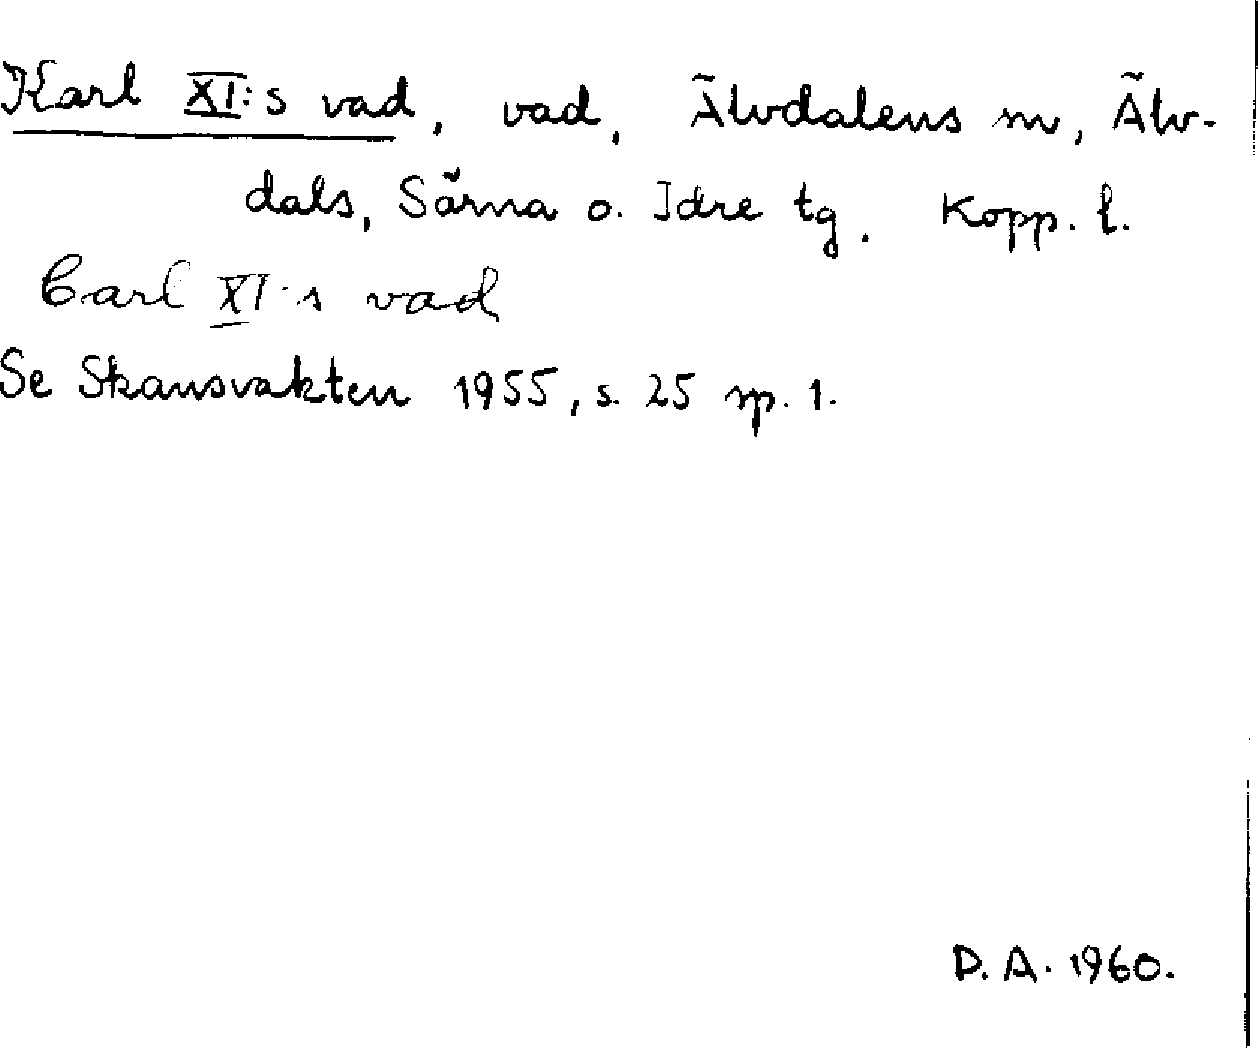 Karl XI:s vad, vad, Älvdalens sn, Älv-
dals, Särna o. Idre tg. Kopp. l.
Carl XI:s vad
Se Skansvakten 1955, s. 25 sp. 1.
D. A. 1960.